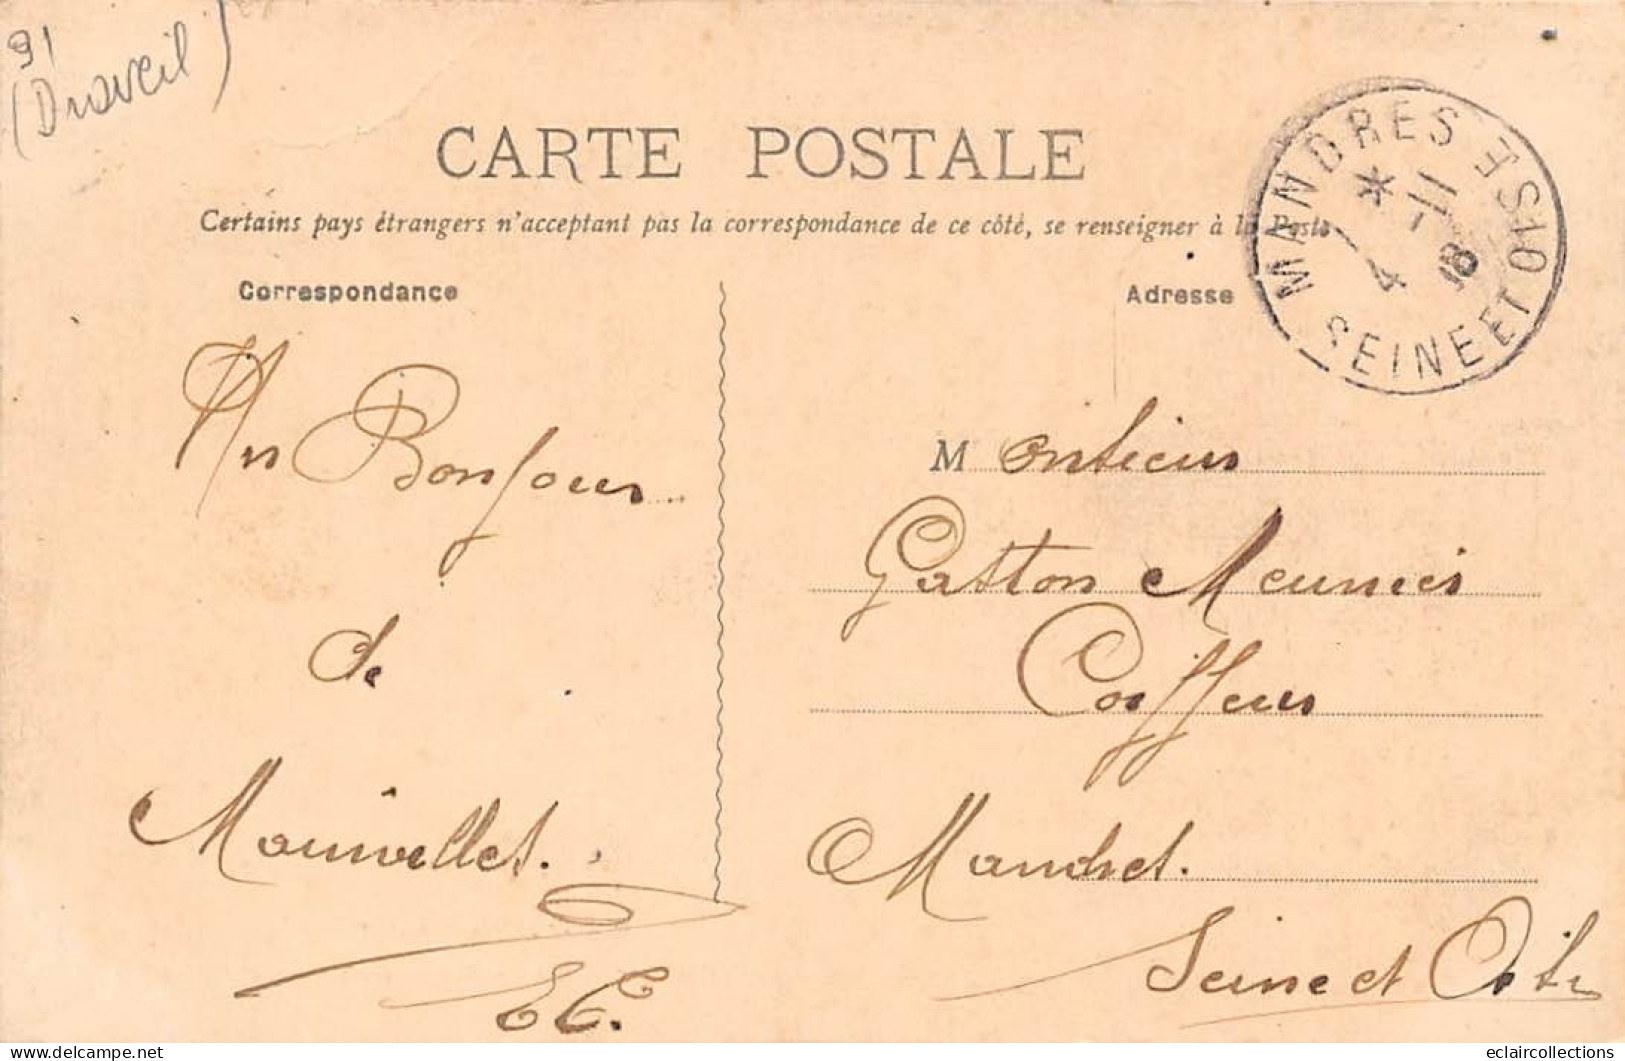 91
(Draveil)
CARTE POSTALE
Certains pays étrangers n'acceptant pas la correspondance de ce côté, se renseigner à la Poste
Correspondance
Adresse
MANDRES
SEINE ET OISE
* 11
4
Un Bonjour
de
Mainvillet.
EC.
Monsieur
Gaston Meunier
Coiffeur
Mandres.
Seine et Oise
delcampe.net
eclaircollections